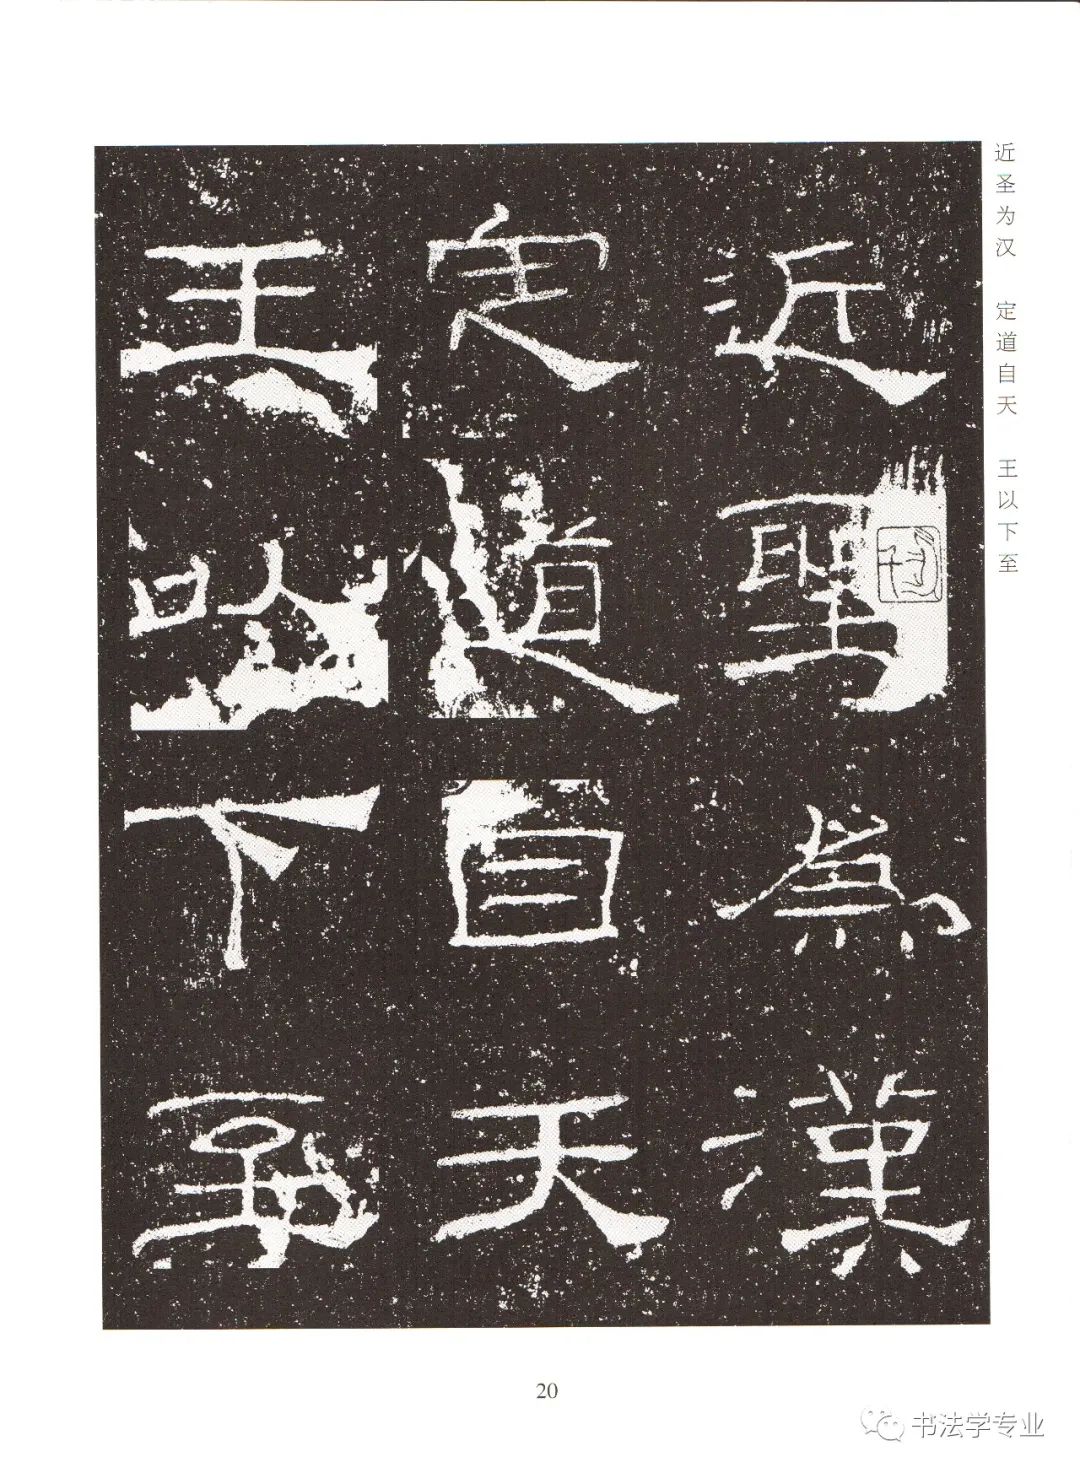 近聖為漢
定道自天
王㠯下至
近圣为汉 定道自天 王以下至
20
书法学专业